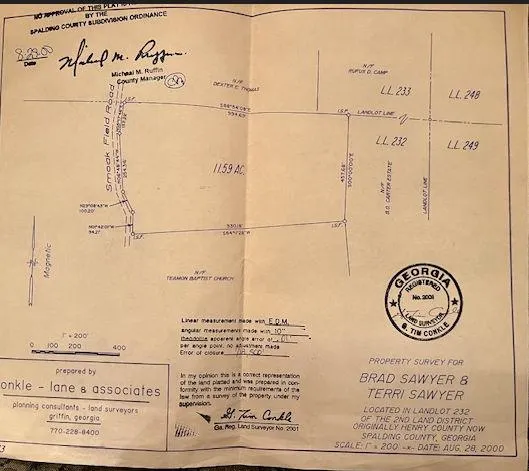 NO APPROVAL OF THIS PLAT IS
BY THE
SPALDING COUNTY SUBDIVISION ORDINANCE
8-29-00
Date
Michael M. Ruffin
Micheal M. Ruffin
County Manager
Smoak Field Road
I.S.F.
N/F
DEXTER E. THOMAS
N/F
RUFUS D. CAMP
L.L. 233
L.L. 248
I.S.F.
LANDLOT LINE
L.L. 232
L.L. 249
11.59 AC.
N/F
B.D. CARTER ESTATE
LANDLOT LINE
100.20'
94.21'
I.S.F.
I.S.F.
Magnetic
N/F
TEAMON BAPTIST CHURCH
GEORGIA
REGISTERED
No. 2001
LAND SURVEYOR
G. TIM CONKLE
1" = 200'
0 100 200 400
Linear measurement made with E.D.M.
angular measurement made with 10"
theodolite apparent angle error of .01"
per angle point, no adjustment made
Error of closure
prepared by
onkle - lane & associates
planning consultants - land surveyors
griffin, georgia
770-228-8400
In my opinion this is a correct representation
of the land platted and was prepared in con-
formity with the minimum requirements of the
law from a survey of the property under my
supervision.
G. Tim Conkle
Ga. Reg. Land Surveyor No. 2001
PROPERTY SURVEY FOR
BRAD SAWYER &
TERRI SAWYER
LOCATED IN LANDLOT 232
OF THE 2ND LAND DISTRICT
ORIGINALLY HENRY COUNTY NOW
SPALDING COUNTY, GEORGIA
SCALE: 1" = 200 -x- DATE: AUG. 28, 2000